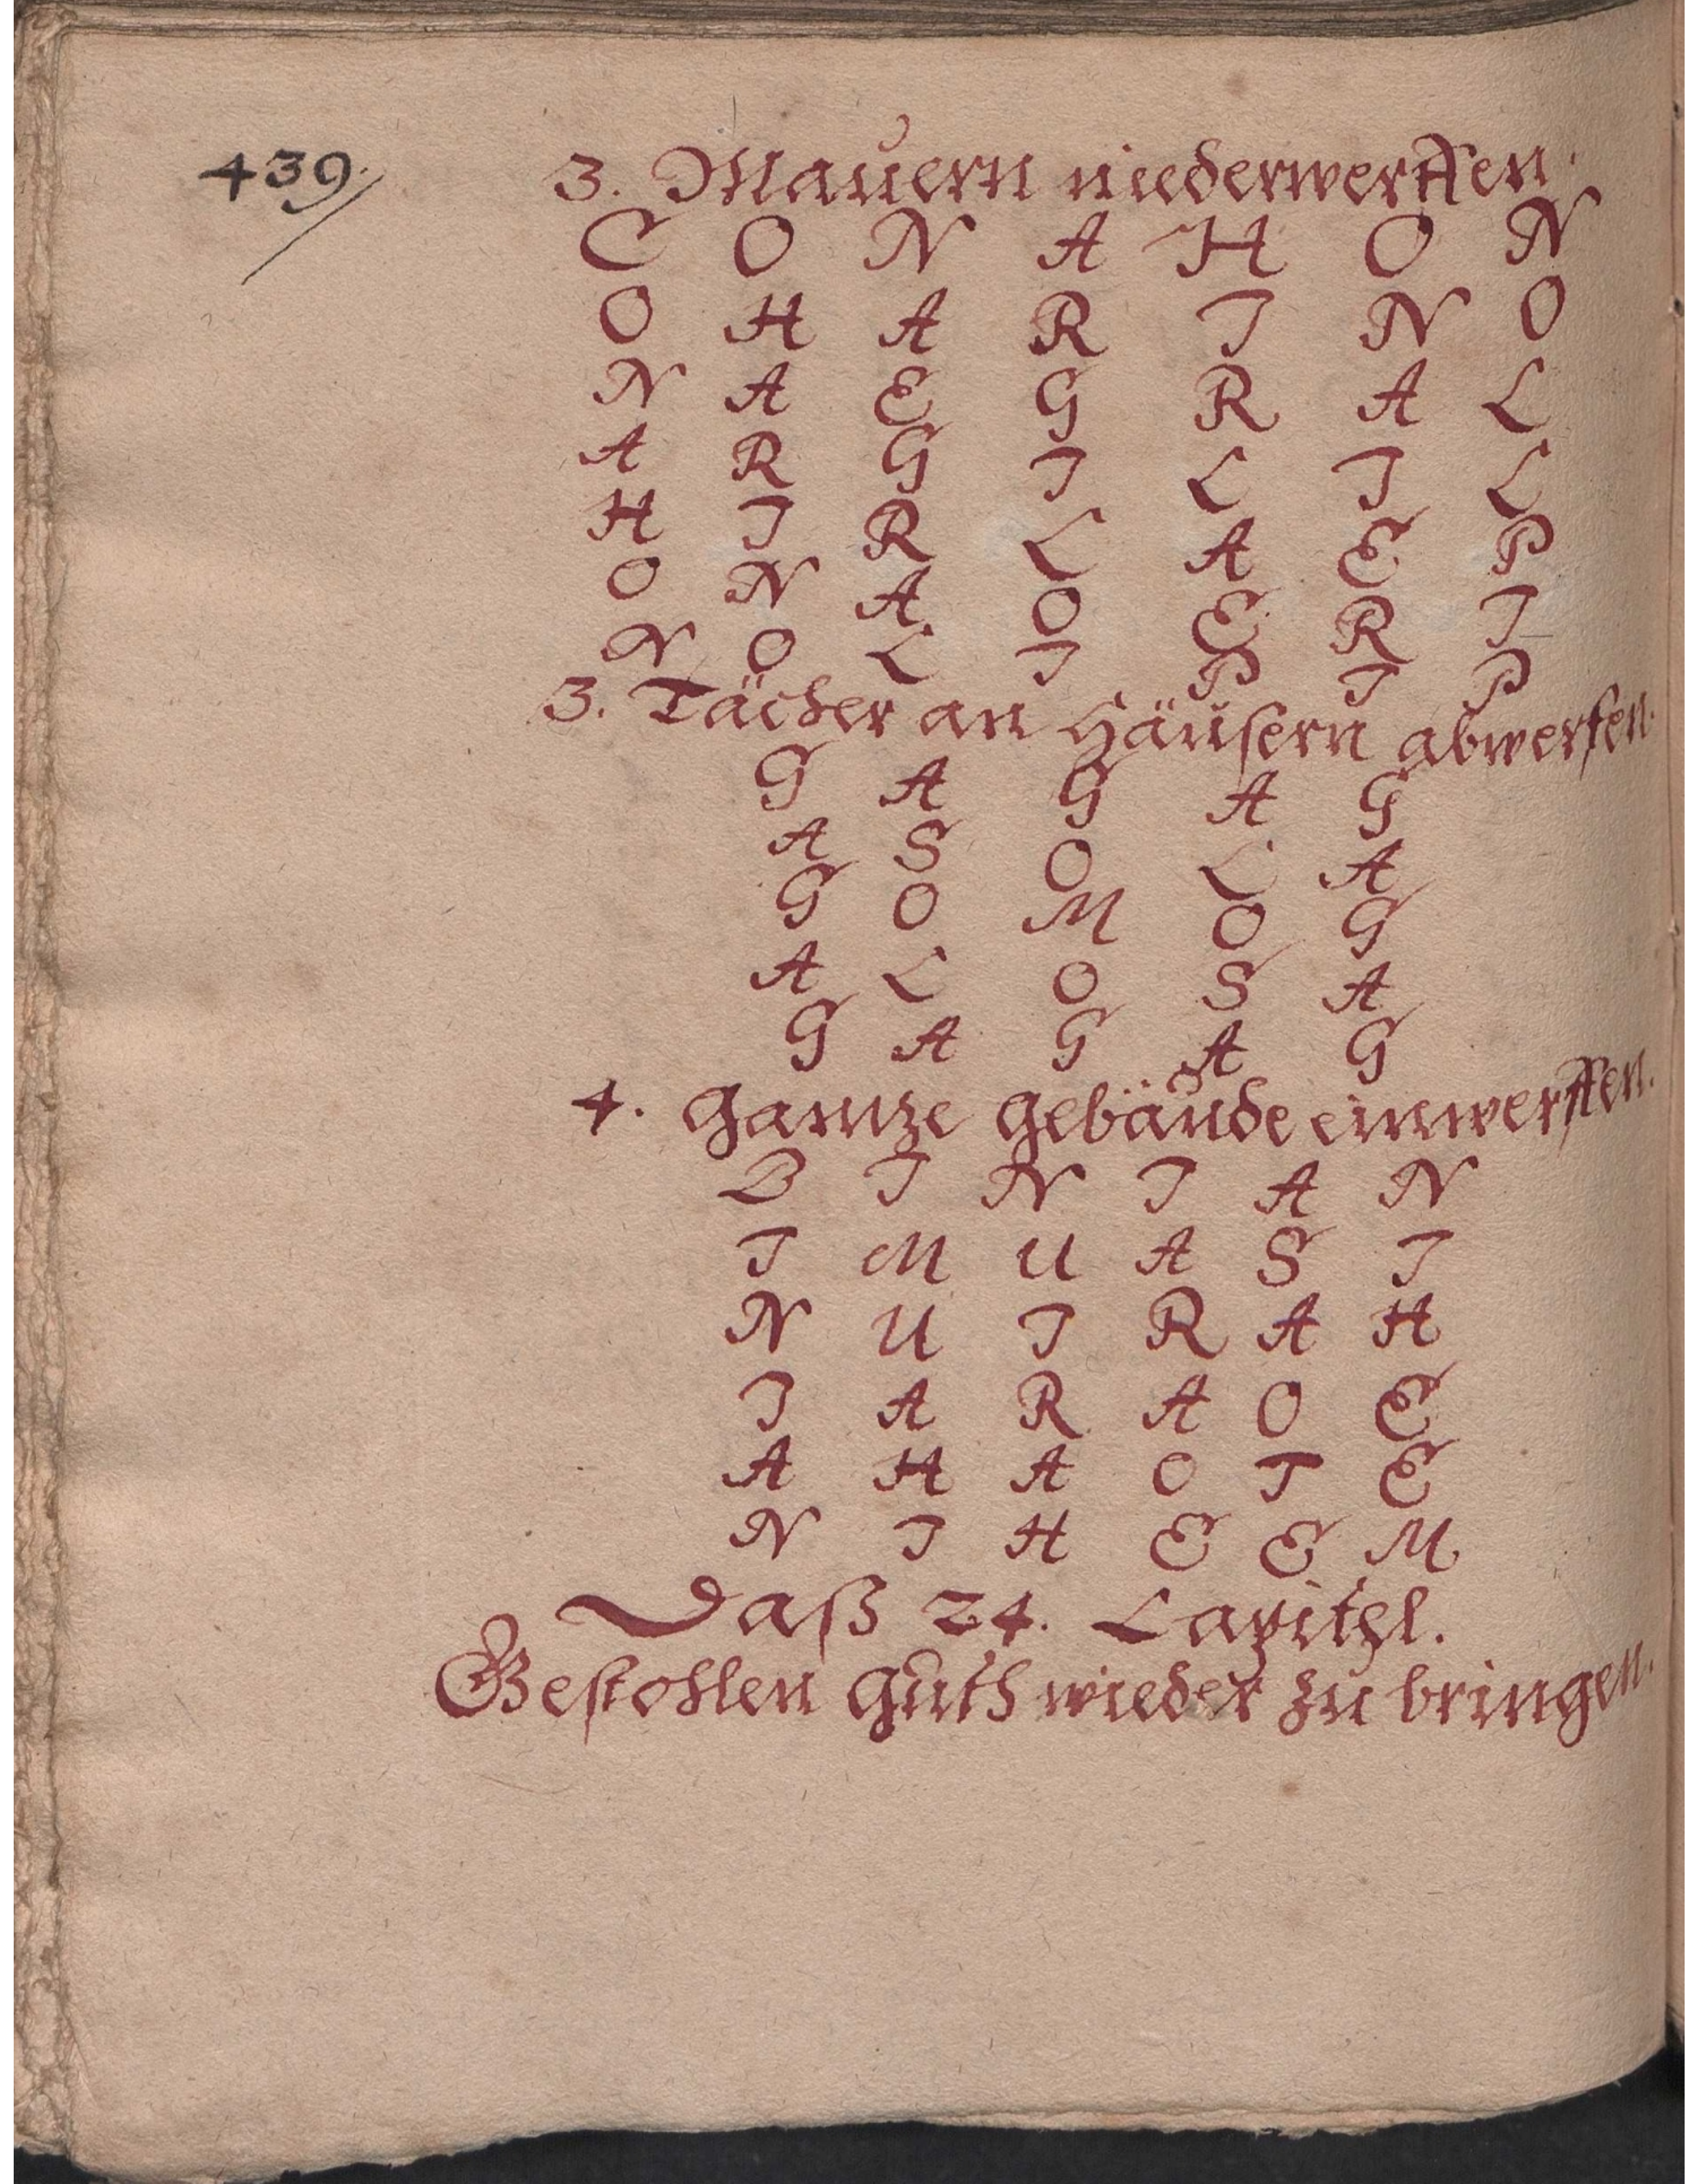 439.
3. Mauern niederwerffen.
C O N A H O N
O H A R I N O
N A E G R A L
A R G I L I L
H I R L A E P
O N A O E R I
N O L I P I P
3. Tächer an Häusern abwerfen.
G A G A G
A S O L A
G O M O G
A L O S A
G A G A G
4. Gantze Gebäude einwerffen.
B I N I A N
I M U A S I
N U I R A H
I A R A O E
A H A O T E
N I H E E M
Daß 24. Capitel.
Gestohlen Guth wieder zu bringen.